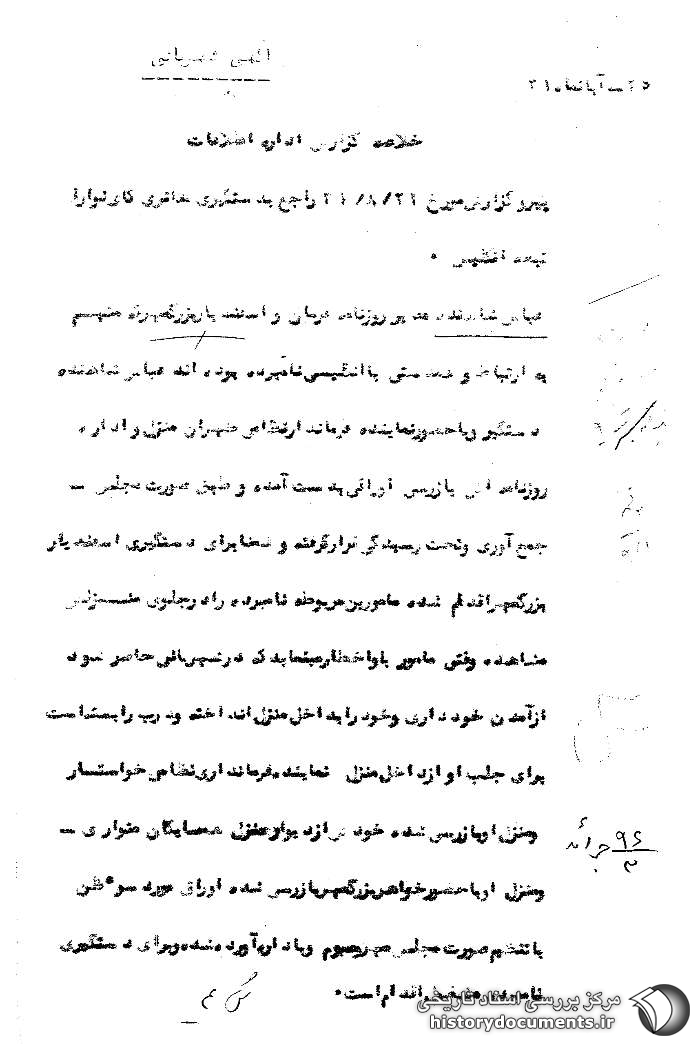 آگهی شهربانی
۲۵ آبانماه ۳۱
خلاصه گزارش اداره اطلاعات
پیرو گزارش مورخ ۳۱/۸/۲۲ راجع بدستگیری
تبعه انگلیس .
عباس شاهنده مدیر روزنامه فرمان و اسفندیار بزرگمهر که متهم
به ارتباط و همدستی با انگلیسی نامبرده بوده اند عباس شاهنده
دستگیر و با حضور نماینده فرماندار نظامی طهران منزل و اداره
روزنامه اش بازرسی اوراقی بدست آمده و طبق صورت مجلس ـ
جمع آوری و تحت رسیدگی قرار گرفته و ضمنا برای دستگیری اسفندیار
بزرگمهر اقدام شده مامورین مربوطه نامبرده را در جلوی منزلش
مشاهده وقتی مامور باو اخطار مینماید که در شهربانی حاضر شود
از آمدن خودداری و خود را بداخل منزل انداخته و درب را بسته است
برای جلب او از داخل منزل نماینده فرمانداری نظامی خواستار
و منزل او بازرسی شده خود از دیوار منزل همسایگان متواری ـ
و منزل او با حضور خواهر بزرگمهر بازرسی شده اوراق مورد سوء ظن
با تنظیم صورت مجلس مهر و موم و باداره آورده شده و برای دستگیری
نامبرده اقدام است.
جرائد ۹۶/۳
مرکز بررسی اسناد تاریخی
historydocuments.ir